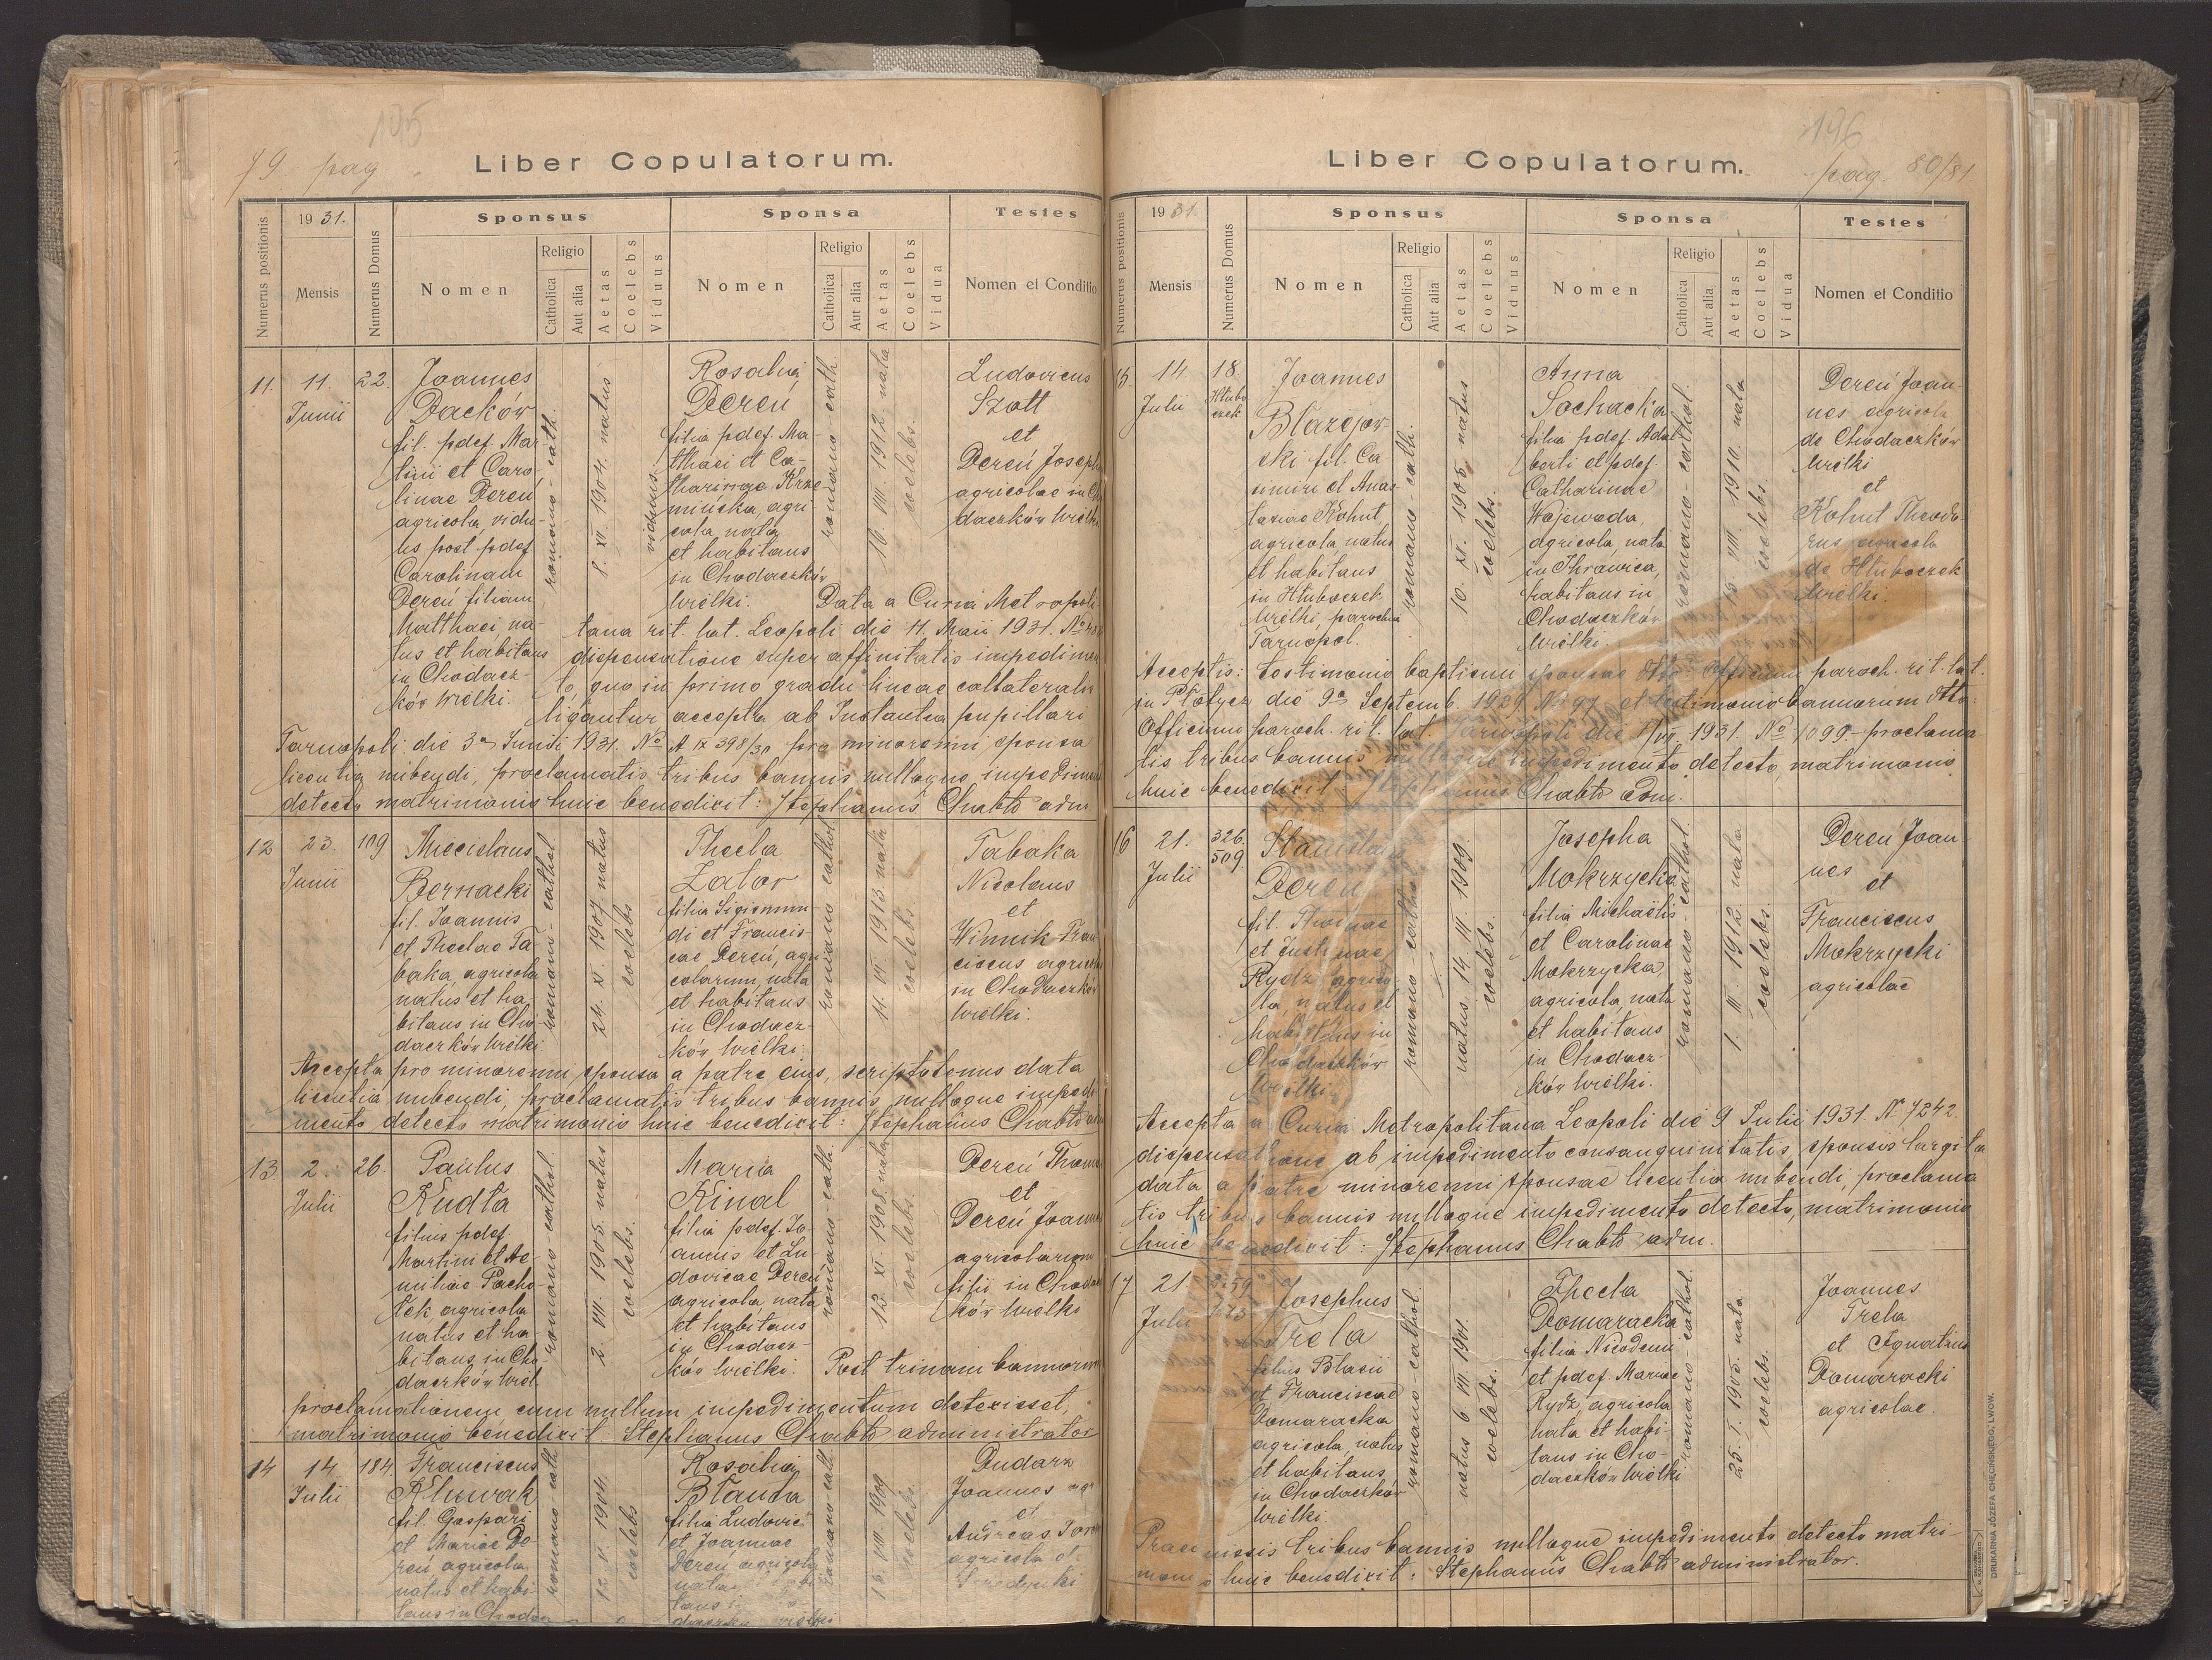 195
79 pag
Liber Copulatorum.
Numerus positionis
1931.
Mensis
Numerus Domus
Sponsus
Nomen
Religio
Catholica
Aut alia
Aetas
Coelebs
Viduus
Sponsa
Nomen
Religio
Catholica
Aut alia
Aetas
Coelebs
Vidua
Testes
Nomen et Conditio
11.
11.
Junii
22.
Joannes
Daćków
fil. pdef. Mar-
tini et Caro-
linae Dereń
agricola, vidu-
us post pdef.
Carolinam
Dereń filiam
Matthaei, na-
tus et habitans
in Chodacz-
ków Wielki.
romano-cath.
8. XI. 1904. natus
viduus.
Rosalia
Dereń
filia pdef. Ma-
tthaei et Ca-
tharinae Krze-
mińska, agri-
cola, nata
et habitans
in Chodaczków
Wielki.
romano-cath.
16. VIII. 1912. nata
coelebs.
Ludovicus
Szott
et
Dereń Joseph
agricolae in Cho
daczków Wielki
Data a Curia Metropoli
tana rit. lat. Leopoli die 11. Maii 1931. No
dispensatione super affinitatis impedimen
to, quo in primo gradu lineae collateralis
ligantur accepta ab Instantia pupillari
Tarnopoli die 3a Junii 1931. No A IX 398/30 pro minorenni sponsa
licentia nubendi, proclamatis tribus bannis nulloque impedimen
detecto matrimonio huic benedixit: Stephanus Chabło adm
12
23.
Junii
109
Miecislaus
Bernacki
fil. Joannis
et Theclae Ta-
baka, agricola
natus et ha-
bitans in Cho-
daczków Wielki
romano-cathol.
24. XI. 1907. natus
coelebs
Thecla
Zator
filia Sigismun-
di et Francis-
cae Dereń, agri
colarum, nata
et habitans
in Chodacz-
ków Wielki.
romano cathol.
11. VI. 1913. nata
coelebs.
Tabaka
Nicolaus
et
Winnik Fran
ciscus agricolae
in Chodaczków
Wielki.
Accepta pro minorenni sponsa a patre eius, scriptotenus data
licentia nubendi, proclamatis tribus bannis, nulloque impedi
mento detecto matrimonio huic benedixit: Stephanus Chabło adm
13
2.
Julii
26.
Paulus
Kudła
filius pdef.
Martini et Ae-
miliae Pacho-
łek agricola
natus et ha-
bitans in Cho-
daczków Wiel.
romano-cathol.
2. VII. 1905. natus
coelebs.
Maria
Kinal
filia pdef. Jo-
annis et Lu-
dovicae Dereń
agricola, nata
et habitans
in Chodacz-
ków Wielki.
romano-cath.
13. XI. 1908. nata
coelebs.
Dereń Thomas
et
Dereń Joannes
agricolarum
filii in Chodacz
ków Wielki
Post trinam bannorum
proclamationem cum nullum impedimentum detexisset,
matrimonio benedixit: Stephanus Chabło administrator
14
14
Julii
184.
Franciscus
Kluwak
fil. Gaspari
et Mariae De-
reń agricola
natus et habi-
tans in Chodacz
romano cath
12. V. 1904.
coelebs
Rosalia
Blauda
filia Ludovici
et Joannae
Dereń agricola
nata
romano cath.
15. VIII. 1909
coelebs.
Dudarz
Joannes agr
et
Andreas
agricola
196
pag. 80/81
Liber Copulatorum.
Numerus positionis
1931.
Mensis
Numerus Domus
Sponsus
Nomen
Religio
Catholica
Aut alia
Aetas
Coelebs
Viduus
Sponsa
Nomen
Religio
Catholica
Aut alia
Aetas
Coelebs
Vidua
Testes
Nomen et Conditio
15.
14.
Julii
18.
Hłubo
czek
Joannes
Błażejow-
ski fil. Ca-
simiri et Anas-
tasiae Kohut,
agricola, natus
et habitans
in Hłuboczek
Wielki, parochia
Tarnopol.
romano-cath.
10. XI. 1905. natus
coelebs.
Anna
Sochacka
filia pdef. Adal
berti et pdef.
Catharinae
Wojewoda,
agricola, nata
in Ihrowica,
habitans in
Chodaczków
Wielki.
romano-cathol.
15. VIII. 1910. nata
coelebs.
Dereń Joan-
nes agricola
de Chodaczków
Wielki
et
Kohut Theodo-
rus agricola
de Hłuboczek
Wielki.
Acceptis: testimonio baptismi sponsae dtto Officium paroch. rit. lat.
in Płotycz die 9a Septemb. 1929 No 97 et testimonio bannorum dtto
Officium paroch. rit. lat. Tarnopoli die 1931. No 1099.- proclama
tis tribus bannis nulloque impedimento detecto, matrimonio
huic benedixit: Stephanus Chabło adm.
16
21.
Julii
326.
509.
Stanislaus
Dereń
fil. Thomae
et Justinae
Rydz agrico-
la, natus et
habitans in
Chodaczków
Wielki.
romano-cathol
natus 14. III. 1909.
coelebs.
Josepha
Mokrzycka
filia Michaelis
et Carolinae
Mokrzycka,
agricola, nata
et habitans
in Chodacz-
ków Wielki.
romano-cathol.
1. III. 1912. nata
coelebs.
Dereń Joan-
nes
et
Franciscus
Mokrzycki
agricolae
Accepta a Curia Metropolitana Leopoli die 9 Julii 1931. No 7242.
dispensatione ab impedimento consanguinitatis sponsis largita
data a patre minorenni sponsae licentia nubendi, proclama
tis tribus bannis nulloque impedimento detecto, matrimonio
huic benedixit: Stephanus Chabło adm.
17
21.
Julii
Josephus
Trela
filius Blasii
et Franciscae
Domaracka
agricola, natus
et habitans
in Chodaczków
Wielki.
romano-cathol
natus 6. VIII 1901.
coelebs.
Thecla
Domaracka
filia Nicodemi
et pdef. Mariae
Rydz, agricola
nata et habi-
tans in Cho-
daczków Wielki
romano-cathol.
25. I. 1905. nata
coelebs.
Joannes
Trela
et Ignatius
Domaracki
agricolae.
Praemissis tribus bannis nulloque impedimento detecto matri-
monio huic benedixit: Stephanus Chabło administrator.
DRUKARNIA JÓZEFA CHĘCIŃSKIEGO, LWÓW.